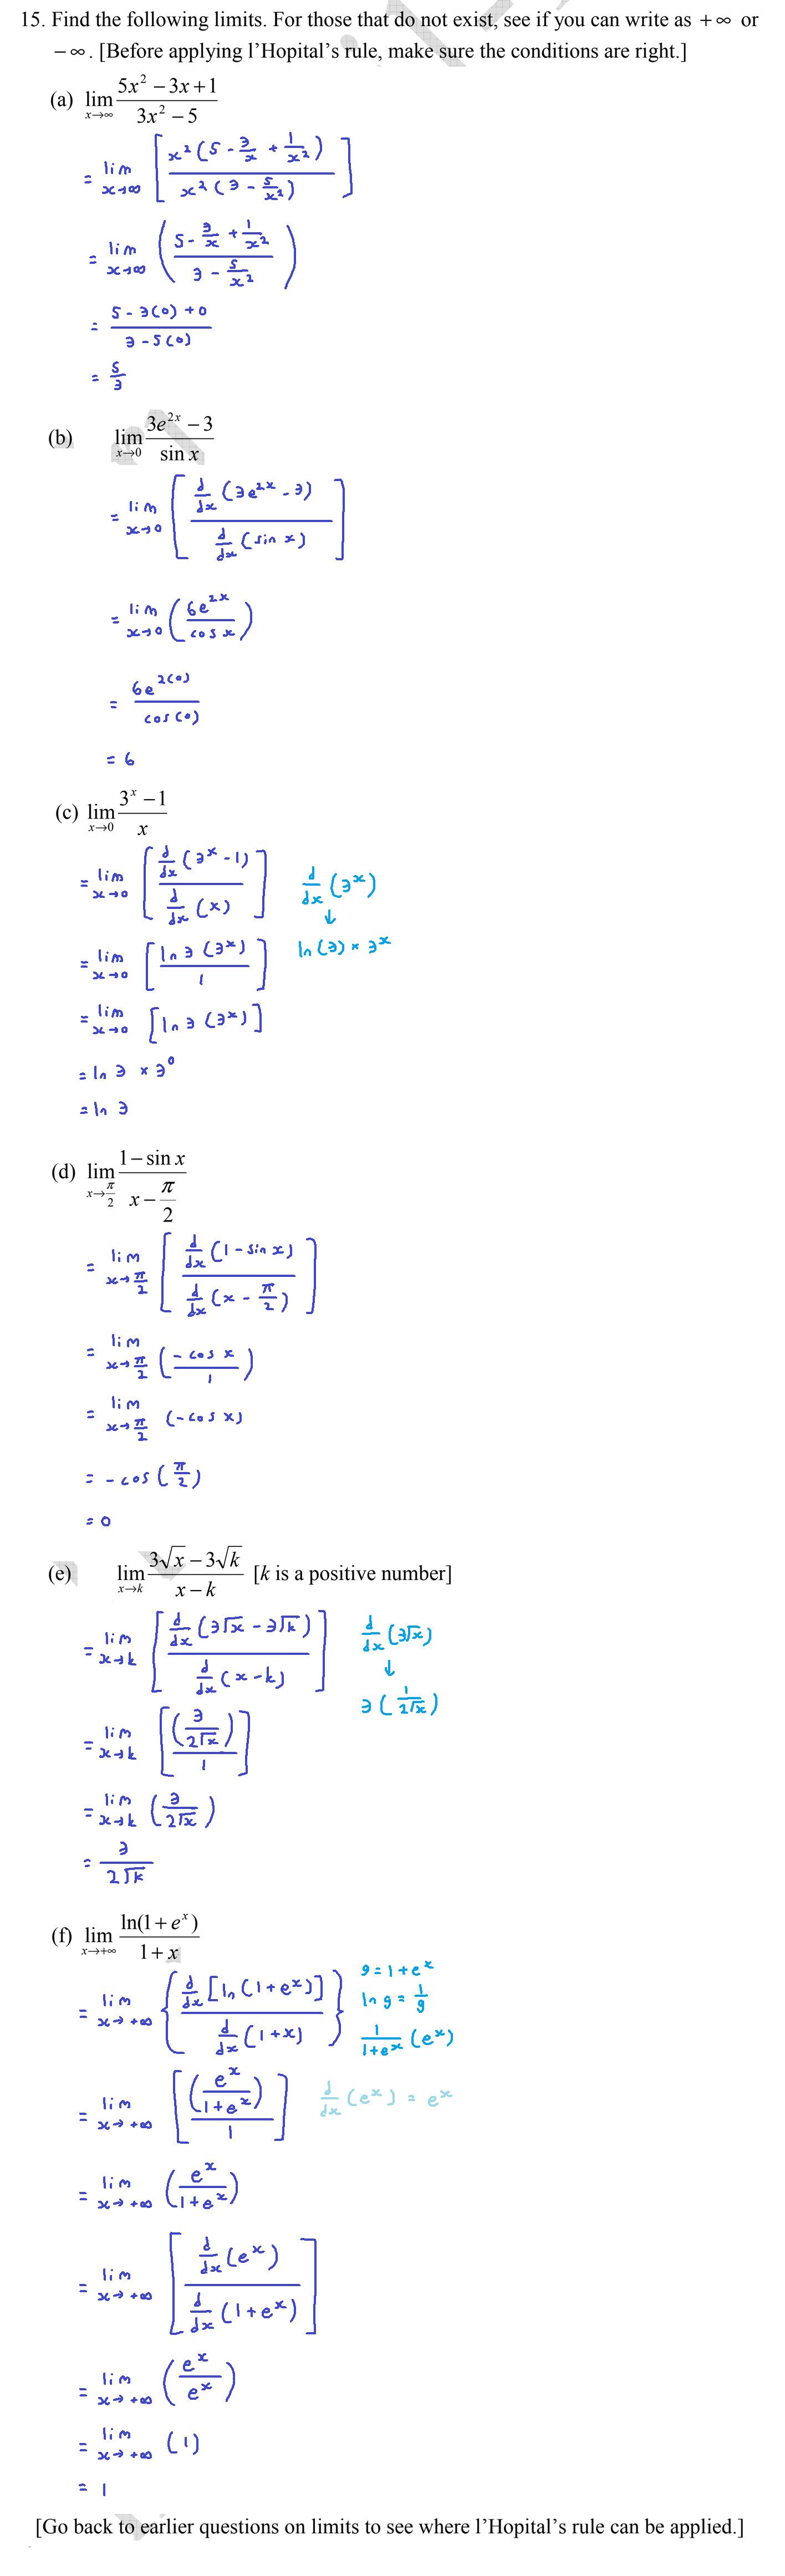 15. Find the following limits. For those that do not exist, see if you can write as +∞ or
−∞. [Before applying l’Hopital’s rule, make sure the conditions are right.]
(a) lim x→∞ (5x² − 3x + 1)/(3x² − 5)
= lim x→∞ [x²(5 − 3/x + 1/x²) / x²(3 − 5/x²)]
= lim x→∞ ((5 − 3/x + 1/x²)/(3 − 5/x²))
= (5 − 3(0) + 0)/(3 − 5(0))
= 5/3
(b) lim x→0 (3e^(2x) − 3)/(sin x)
= lim x→0 [d/dx (3e^(2x) − 3) / d/dx (sin x)]
= lim x→0 (6e^(2x)/cos x)
= 6e^(2(0))/cos(0)
= 6
(c) lim x→0 (3^x − 1)/x
= lim x→0 [d/dx (3^x − 1) / d/dx (x)]
d/dx (3^x)
↓
ln(3) × 3^x
= lim x→0 [ln 3 (3^x) / 1]
= lim x→0 [ln 3 (3^x)]
= ln 3 × 3^0
= ln 3
(d) lim x→π/2 (1 − sin x)/(x − π/2)
= lim x→π/2 [d/dx (1 − sin x) / d/dx (x − π/2)]
= lim x→π/2 (−cos x / 1)
= lim x→π/2 (−cos x)
= −cos(π/2)
= 0
(e) lim x→k (3√x − 3√k)/(x − k) [k is a positive number]
= lim x→k [d/dx (3√x − 3√k) / d/dx (x − k)]
d/dx (3√x)
↓
3(1/(2√x))
= lim x→k [(3/(2√x)) / 1]
= lim x→k (3/(2√x))
= 3/(2√k)
(f) lim x→+∞ ln(1 + e^x)/(1 + x)
= lim x→+∞ {d/dx [ln(1 + e^x)] / d/dx (1 + x)}
g = 1 + e^x
ln g = 1/g
1/(1 + e^x) (e^x)
= lim x→+∞ [(e^x/(1 + e^x)) / 1]
d/dx (e^x) = e^x
= lim x→+∞ (e^x/(1 + e^x))
= lim x→+∞ [d/dx (e^x) / d/dx (1 + e^x)]
= lim x→+∞ (e^x/e^x)
= lim x→+∞ (1)
= 1
[Go back to earlier questions on limits to see where l’Hopital’s rule can be applied.]